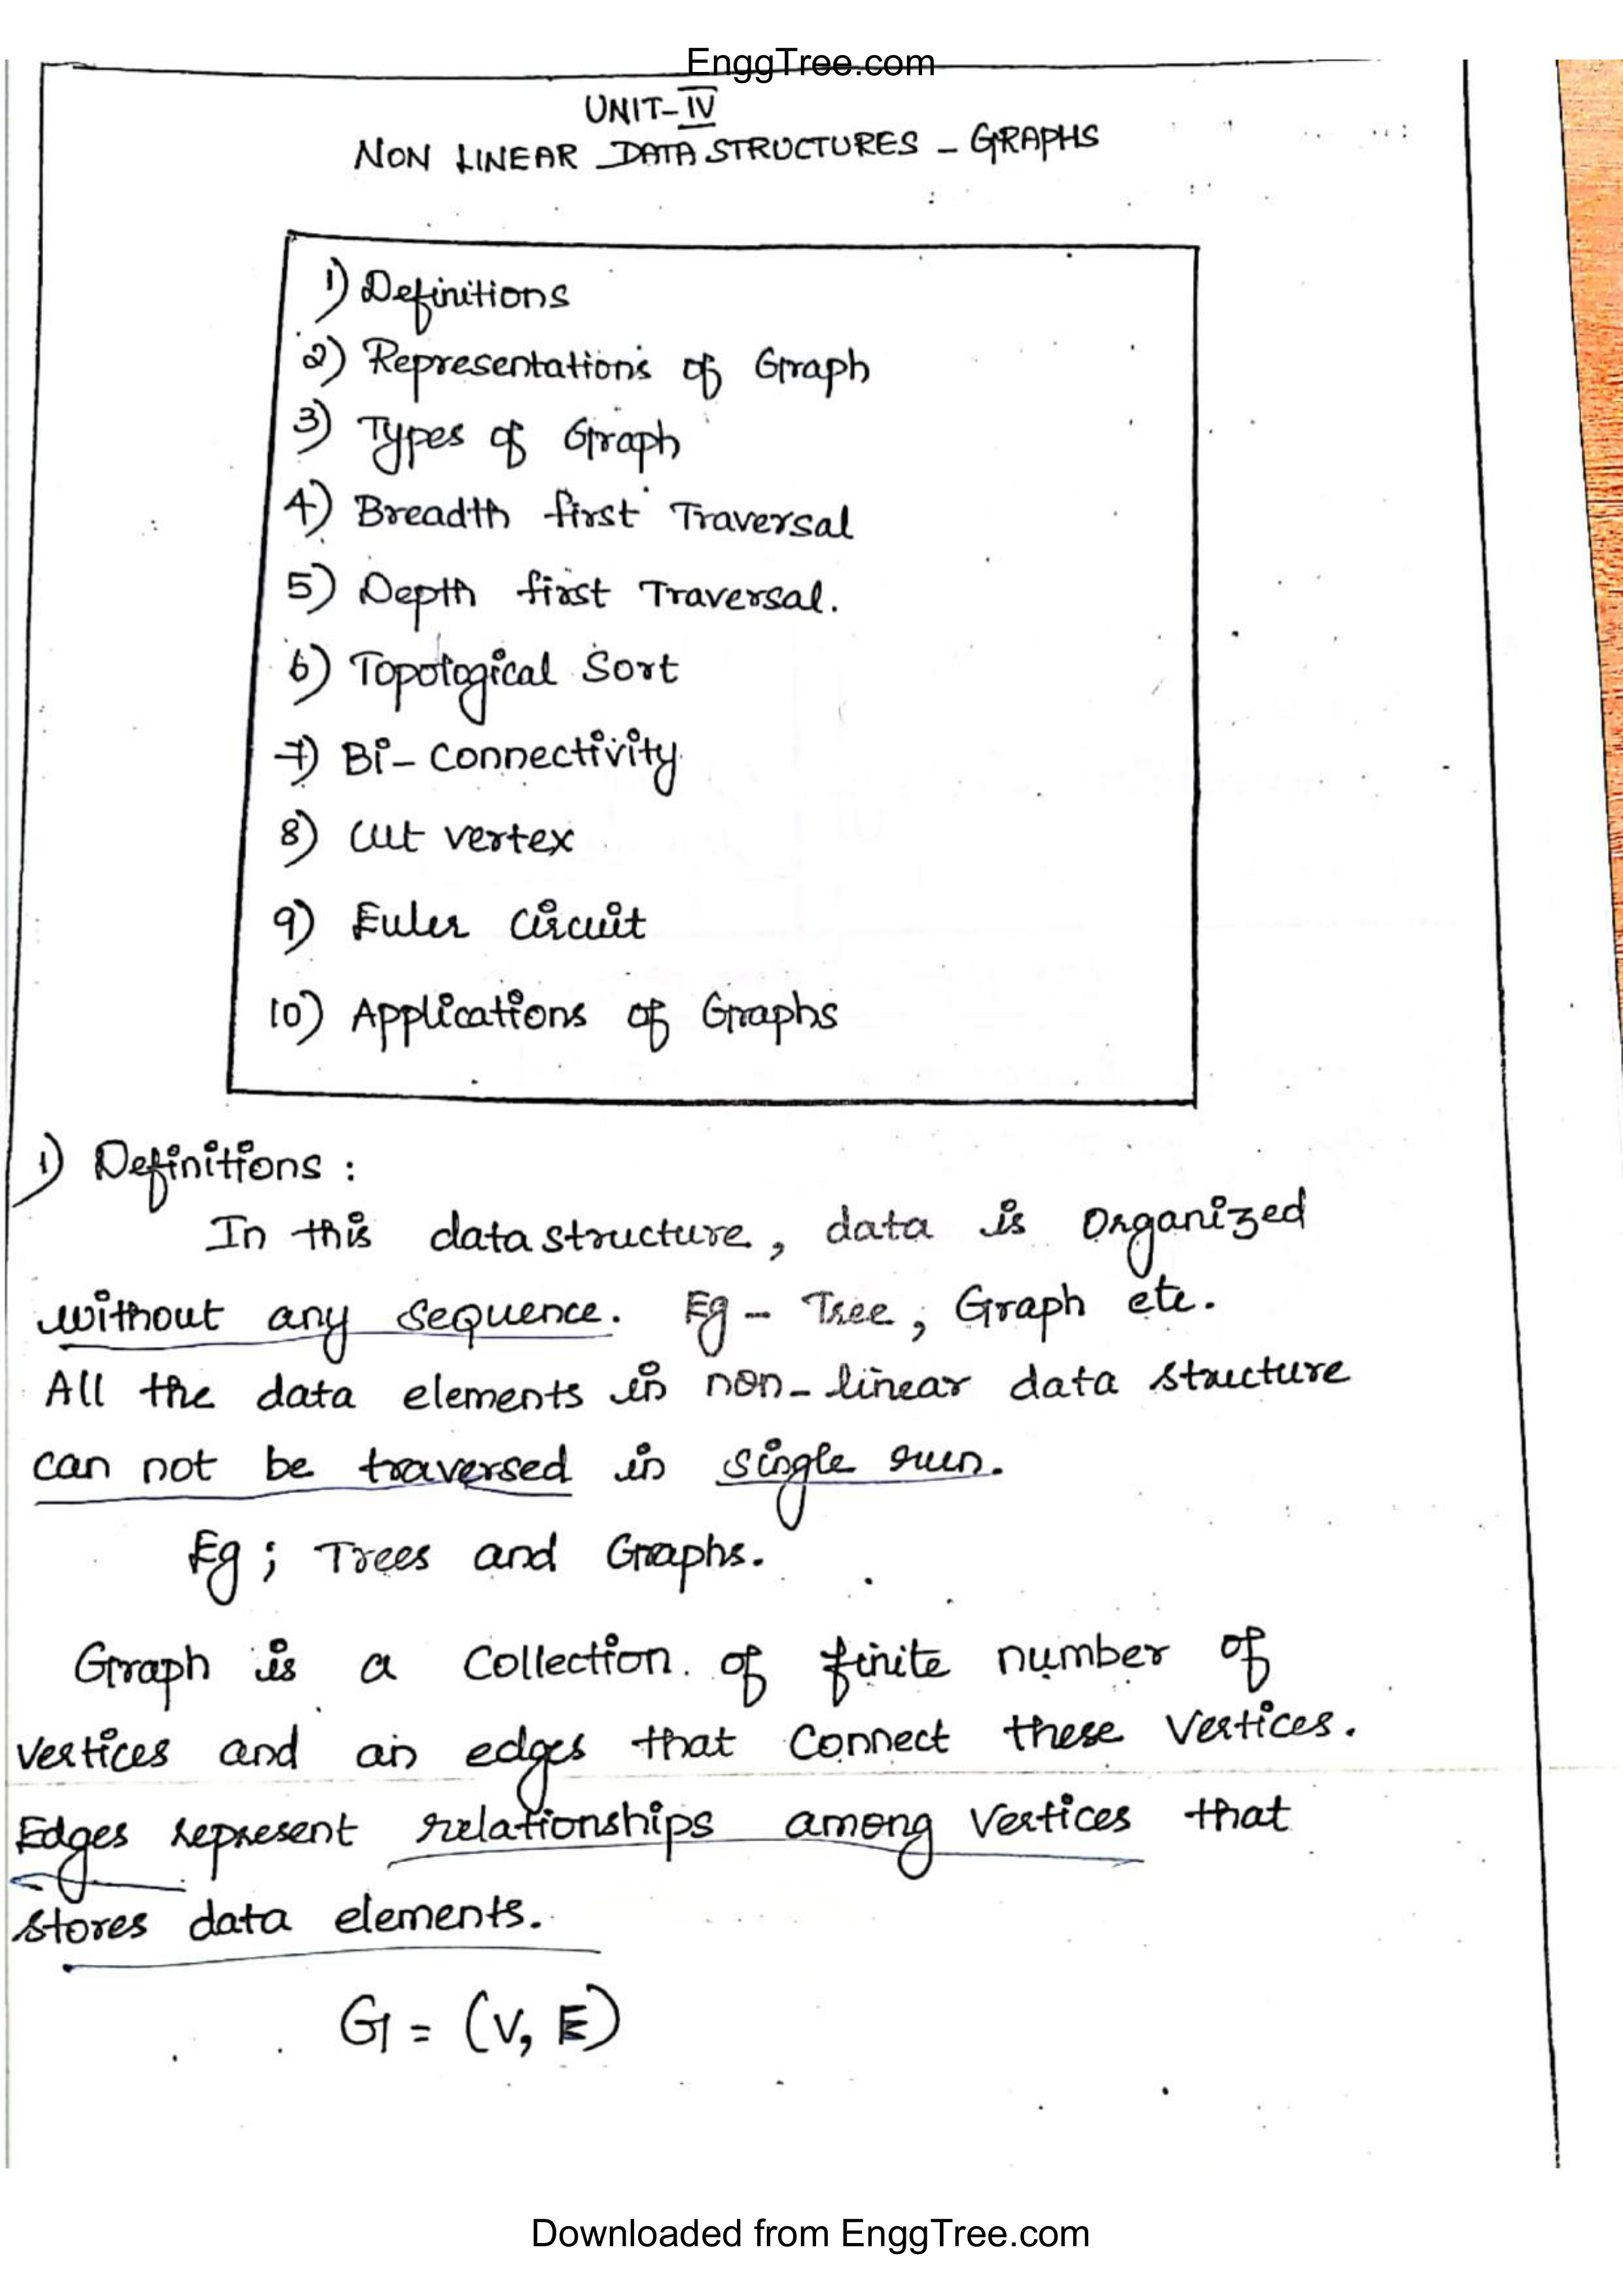 EnggTree.com
UNIT-IV
NON LINEAR DATA STRUCTURES - GRAPHS
1) Definitions
2) Representations of Graph
3) Types of Graph
4) Breadth first Traversal
5) Depth first Traversal.
6) Topological Sort
7) Bi-Connectivity
8) Cut vertex
9) Euler Circuit
10) Applications of Graphs
1) Definitions :
In this data structure, data is Organized
without any sequence. Eg - Tree, Graph etc.
All the data elements in non-linear data structure
can not be traversed in single run.
Eg; Trees and Graphs.
Graph is a Collection of finite number of
vertices and an edges that Connect these Vertices.
Edges represent relationships among Vertices that
stores data elements.
G = (V, E)
Downloaded from EnggTree.com